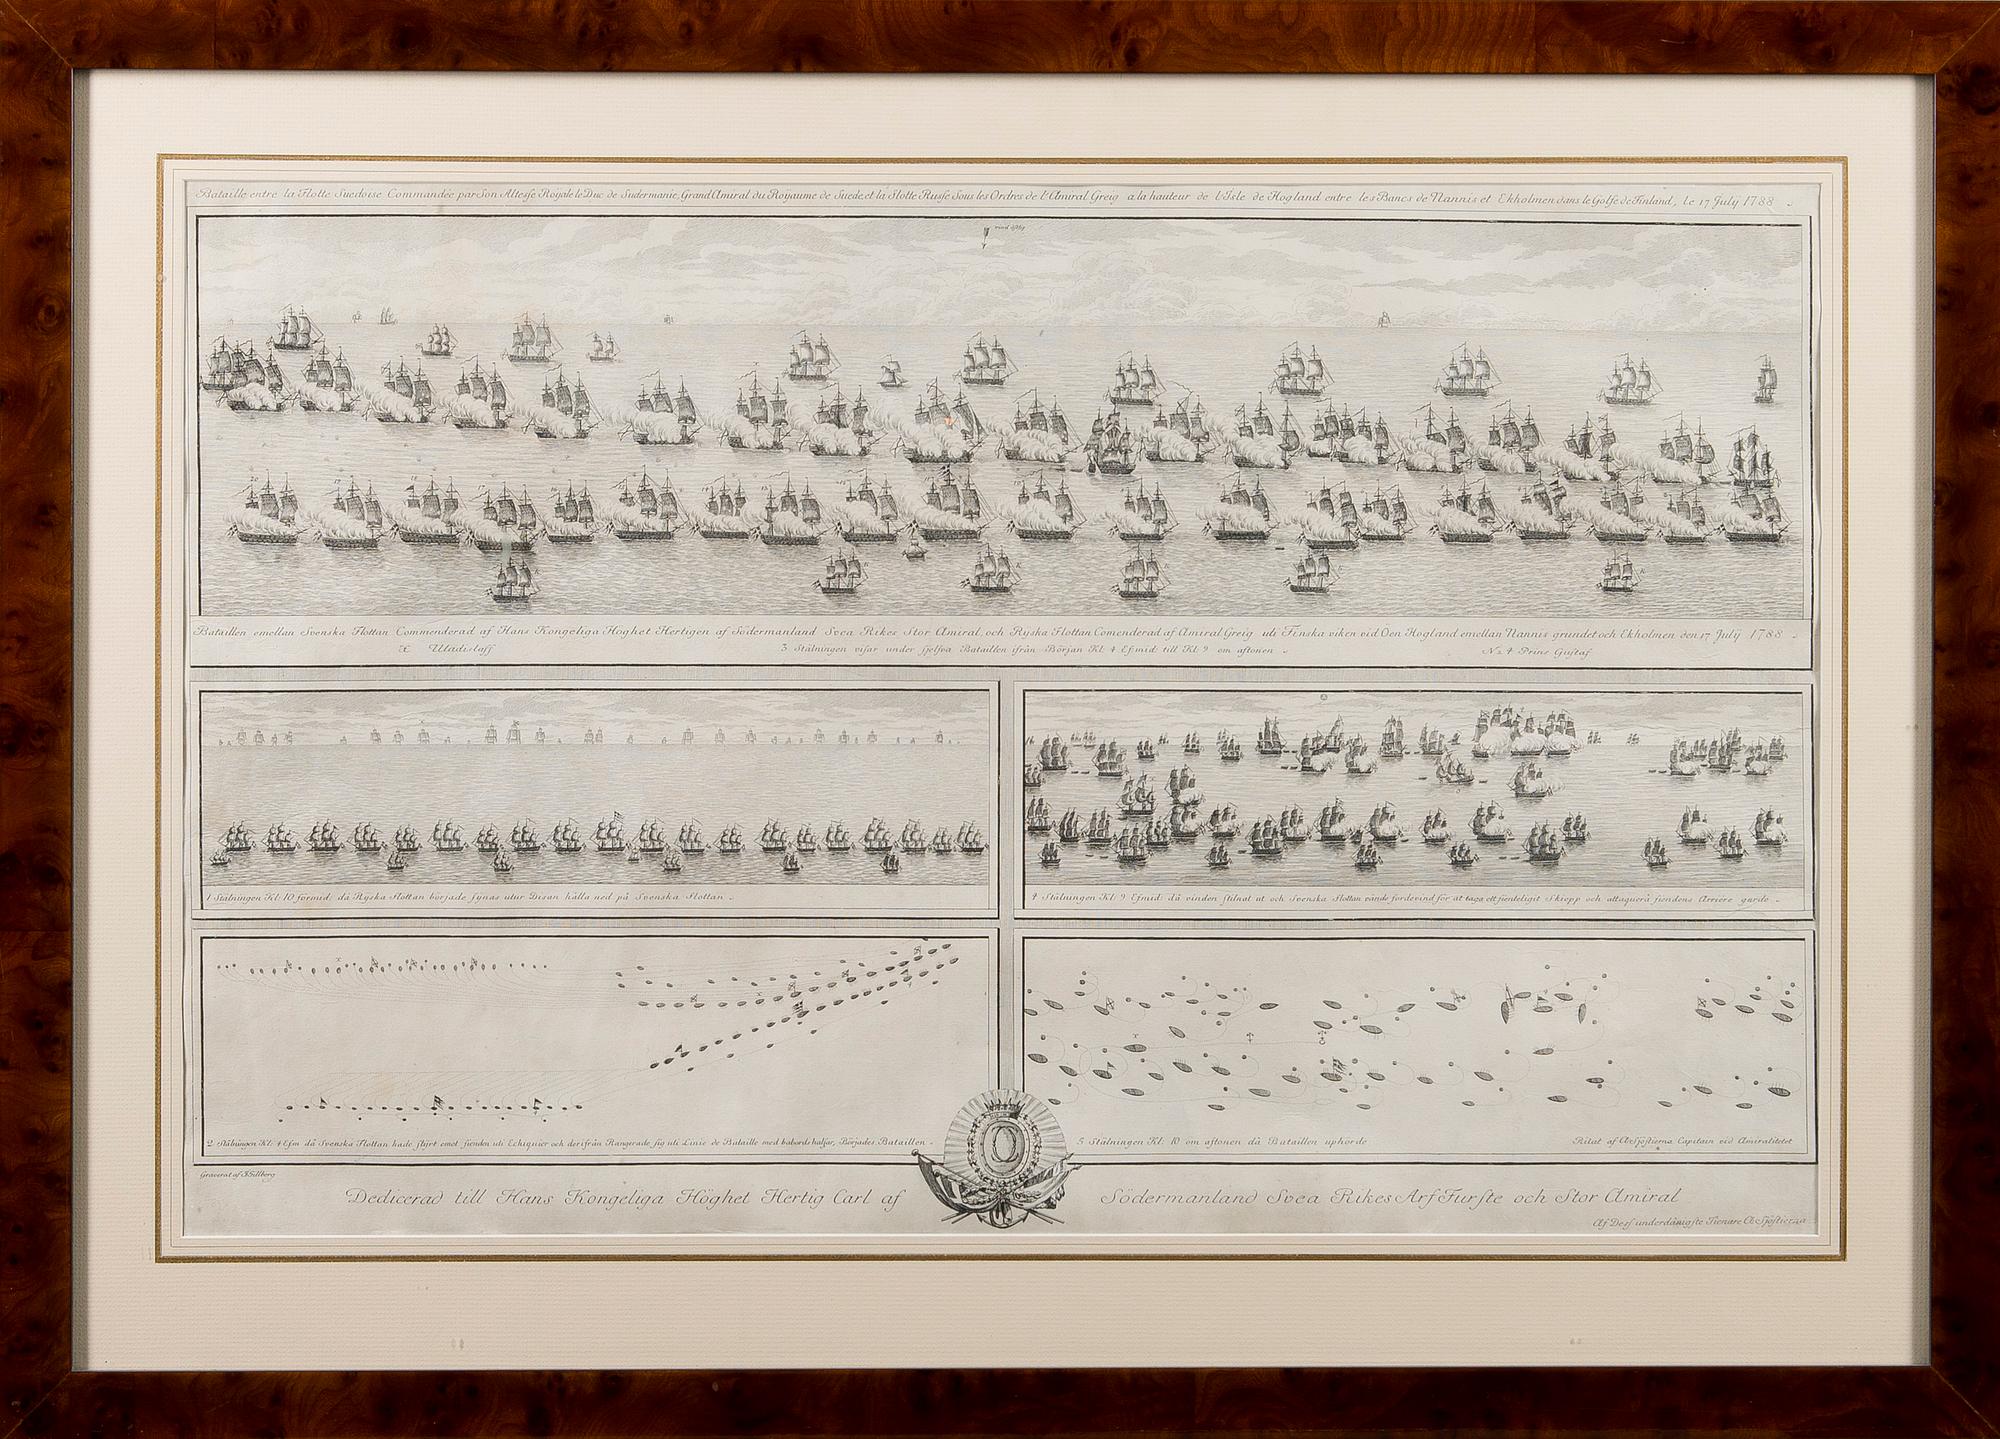 Bataille entre la Flotte Suedoise Commandée par Son Altesse Royale le Duc de Sudermanie, Grand Amiral du Royaume de Suede, et la Flotte Russe Sous les Ordres de l'Amiral Greig a la hauteur de l'Isle de Hogland entre les Bancs de Nannis et Ekholmen dans le Golfe de Finland, le 17 July 1788
vind ostlig
20 19 18 17 16
Bataillen emellan Svenska Flottan Commenderad af Hans Kongeliga Höghet Hertigen af Södermanland Svea Rikes Stor Amiral, och Ryska Flottan Comenderad af Amiral Greig uti Finska viken vid Öen Hogland emellan Nannis grundet och Ekholmen den 17 July 1788
Æ Uladislaff
3 Stälningen visar under sjelfva Bataillen ifrån Början Kl: 4 Efmid: till Kl: 9 om aftonen
No 4 Prins Gustaf
1 Stälningen Kl: 10 formid: då Ryska Flottan började synas utur Disan hålla ned på Svenska Flottan
4 Stälningen Kl: 9 Efmid: då vinden stilnat ut och Svenska Flottan vände fordevind for at taga ett fienteligit Skiepp och attaquera fiendens Arriére garde
2 Stälningen Kl: 4 Efm då Svenska Flottan hade styrt emot fienden uti Echiquier och derifrån Rangerade sig uti Linie de Bataille med babords halsar, Börjades Bataillen
5 Stälningen Kl: 10 om aftonen då Bataillen uphörde
Ritat af CB Sjöstierna Capitain vid Amiralitetet
Graverat af J Gillberg
Dedicerad till Hans Kongeliga Höghet Hertig Carl af Södermanland Svea Rikes Arf Furste och Stor Amiral
Af Dess underdånigste Tienare Sjöstierna